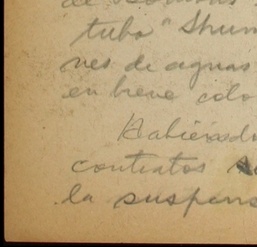 de
tubo "Shum
nes de aguas
en breve colo
Habiend
contratos
la suspens